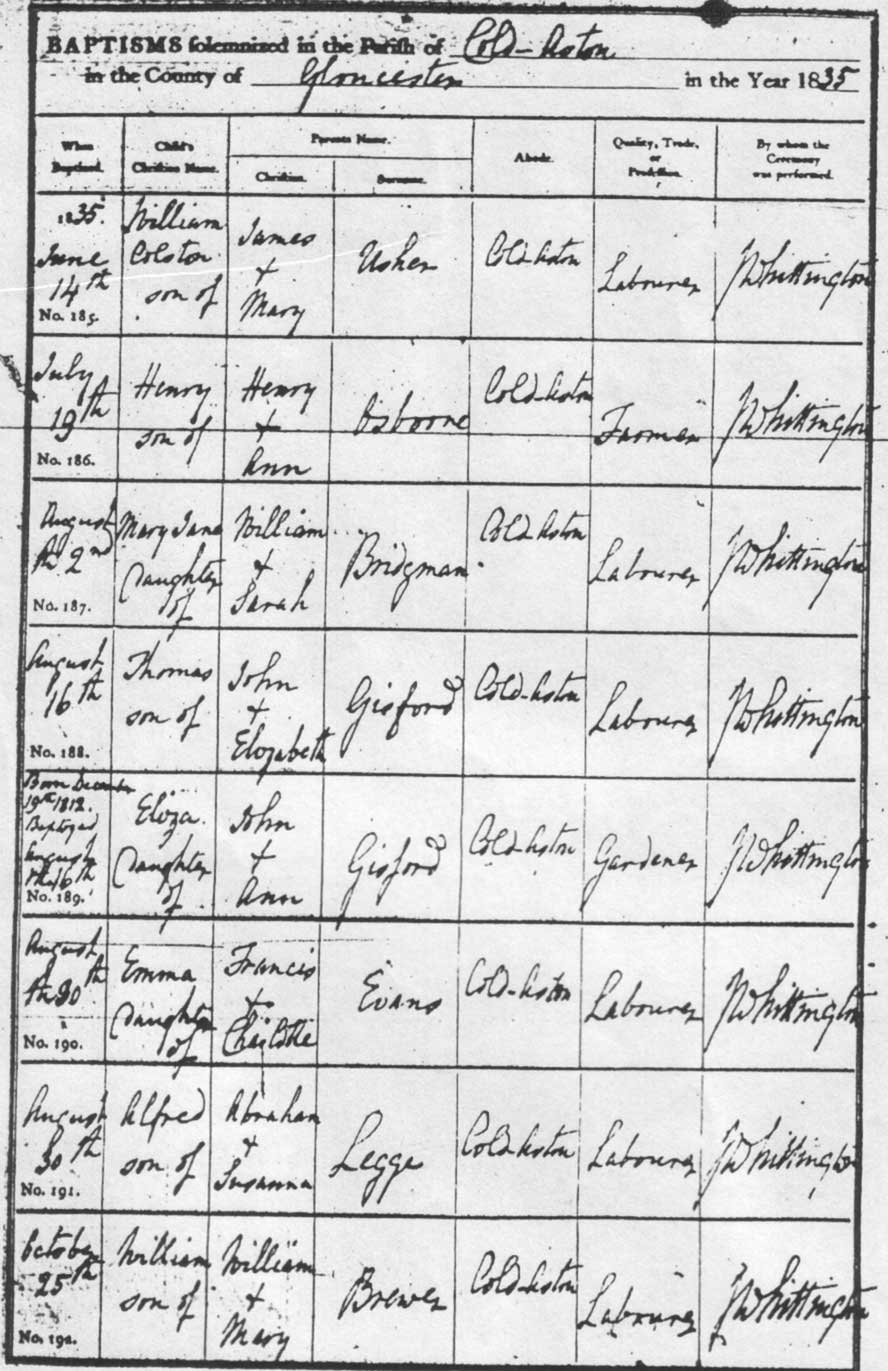 BAPTISMS solemnized in the Parish of Cold-Aston
in the County of Gloucester in the Year 1835
When Baptized. Child's Christian Name. Parents Name. Abode. Quality, Trade, or Profession. By whom the Ceremony was performed.
Christian. Surname.
1835. June 14th No. 185. William Colston son of James + Mary Usher Cold Aston Labourer JWhittington
July 19th No. 186. Henry son of Henry + Ann Osborne Cold Aston Farmer JWhittington
August th 2nd No. 187. Mary Jane Daughter of William + Sarah Bridgman Cold Aston Labourer JWhittington
August 16th No. 188. Thomas son of John + Elizabeth Gisford Cold-Aston Labourer JWhittington
Born December 19th 1812. Baptized August th 16th No. 189. Eliza Daughter of John + Ann Gisford Cold Aston Gardener JWhittington
August th 30th No. 190. Emma Daughter of Francis + Charlotte Evans Cold-Aston Labourer JWhittington
August 30th No. 191. Alfred son of Abraham + Susanna Legge Cold Aston Labourer JWhittington
October 25th No. 192. William son of William + Mary Brewer Cold Aston Labourer JWhittington